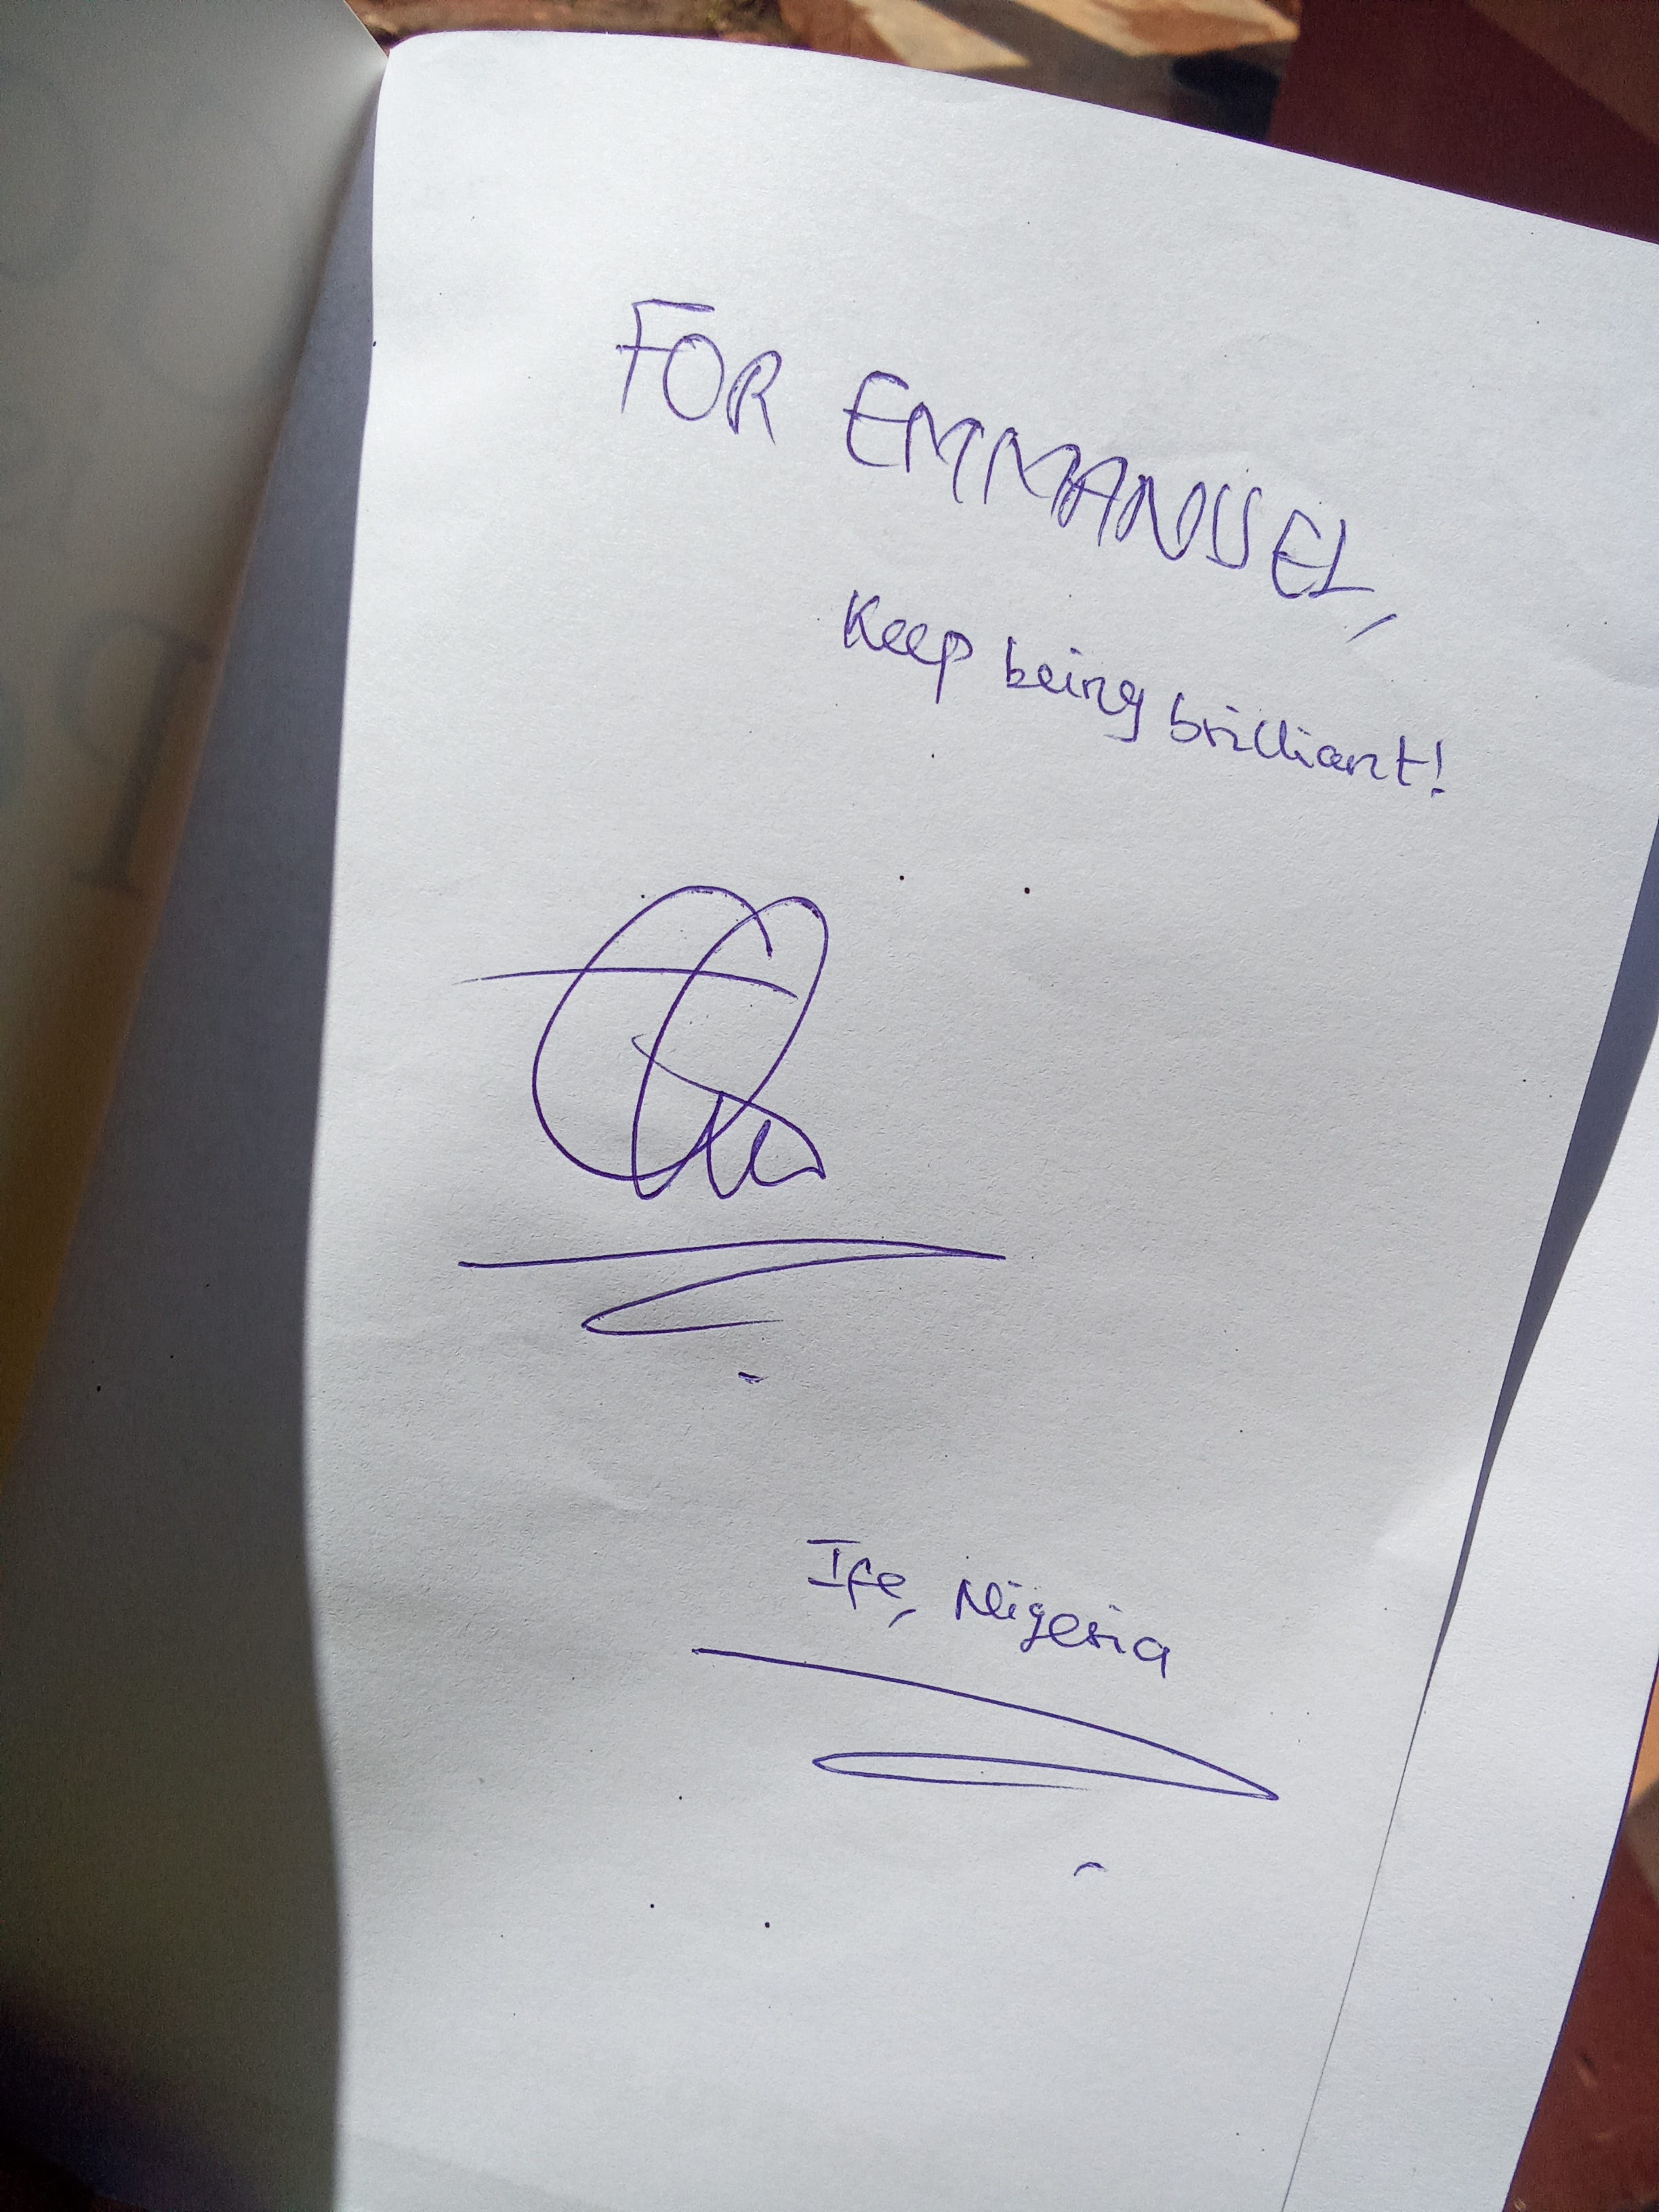 FOR EMMANUEL,
Keep being brilliant!
Ife, Nigeria